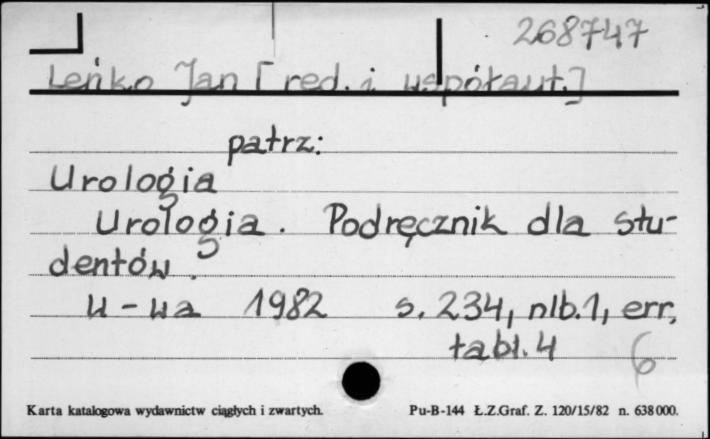 268747
Leńko Jan [red. i współaut.]
patrz:
Urologia
Urologia. Podręcznik dla stu-
dentów.
W-wa 1982 s. 234, nlb.1, err,
tabl. 4
6
Karta katalogowa wydawnictw ciągłych i zwartych. Pu-B-144 Ł.Z.Graf. Z. 120/15/82 n. 638000.